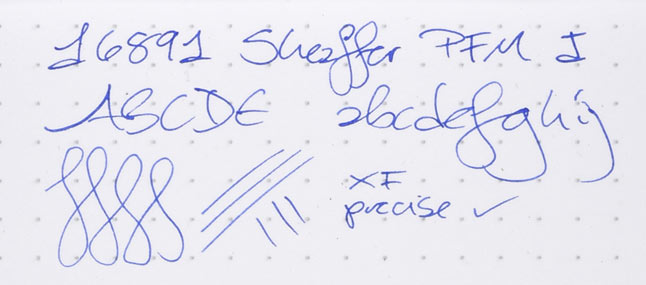 16891 Sheaffer PFM I
ABCDE abcdefghij
XF
precise ✓